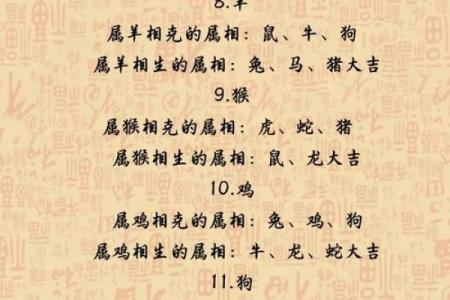 8.羊
属羊相克的属相：鼠、牛、狗
属羊相生的属相：兔、马、猪大吉
9.猴
属猴相克的属相：虎、蛇、猪
属猴相生的属相：鼠、龙大吉
10.鸡
属鸡相克的属相：兔、鸡、狗
属鸡相生的属相：牛、龙、蛇大吉
11.狗